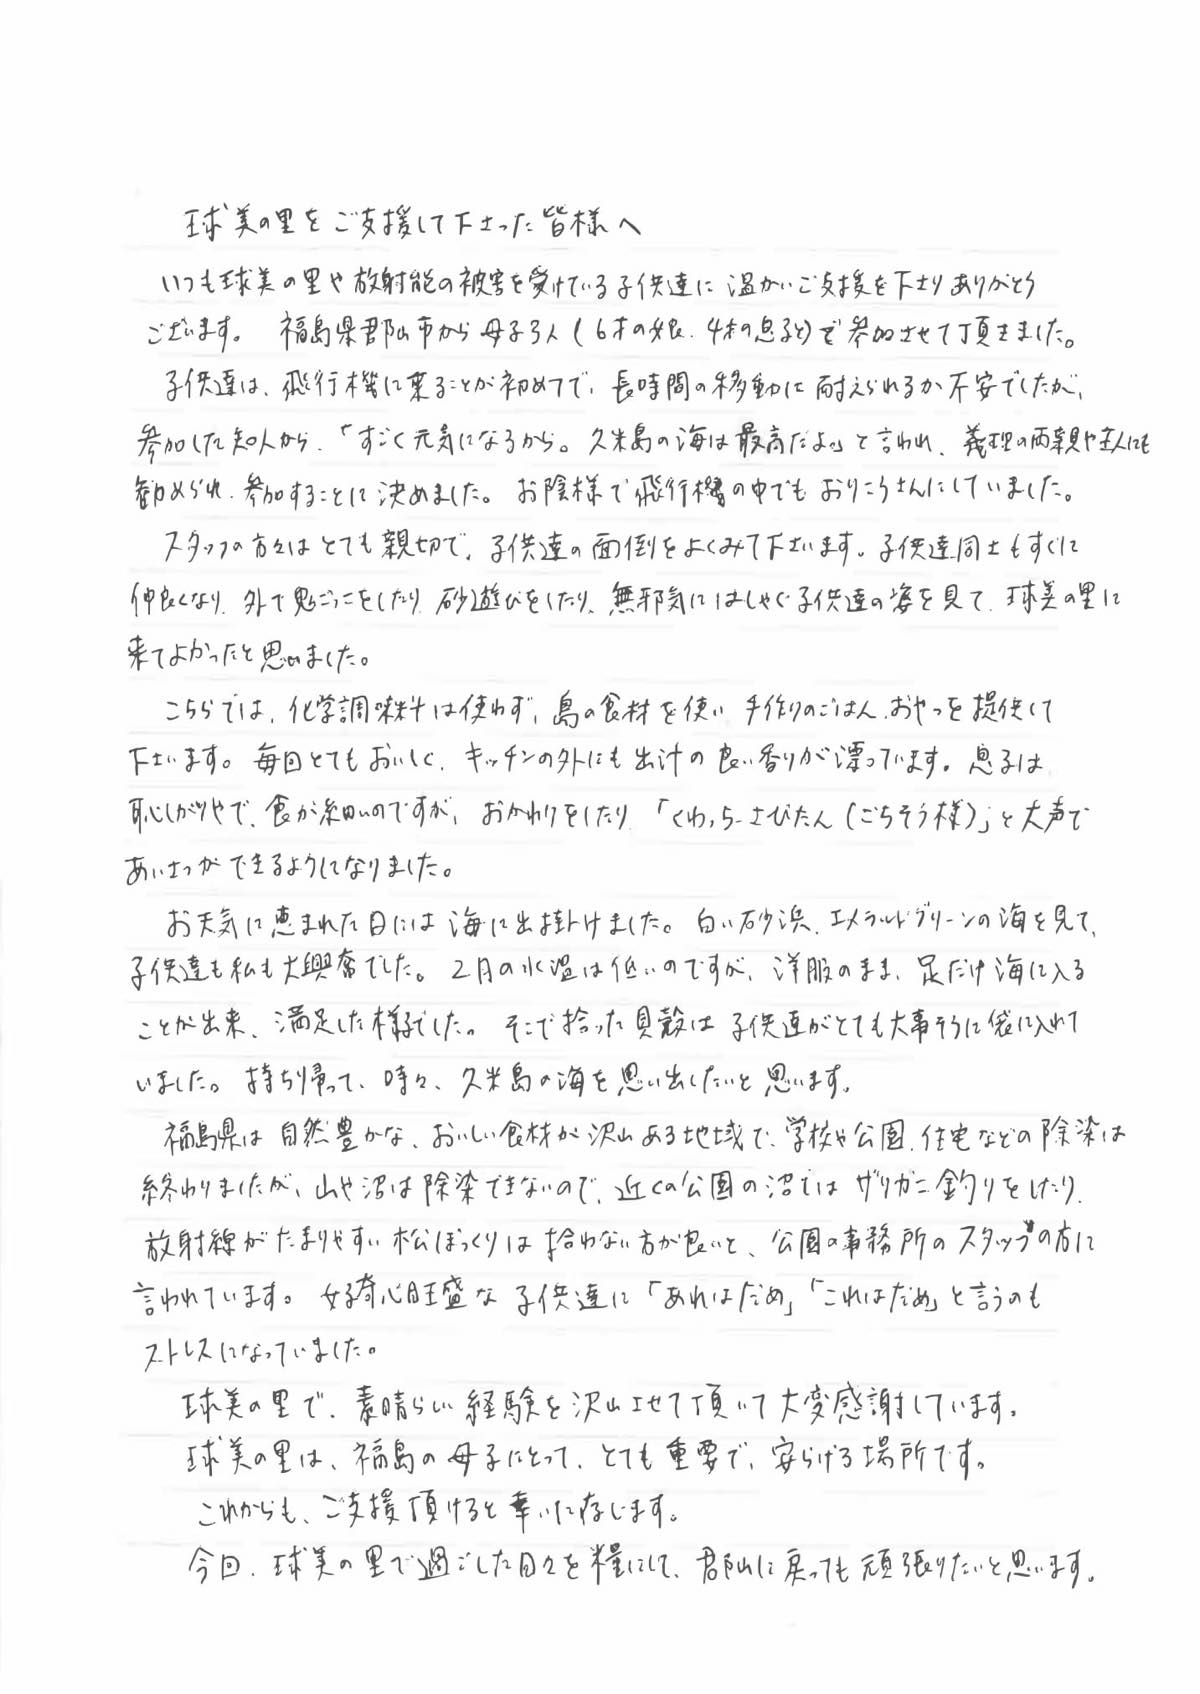 球美の里をご支援して下さった皆様へ
いつも球美の里や放射能の被害を受けている子供達に温かいご支援を下さりありがとう
ございます。 福島県郡山市から母子3人(6才の娘、4才の息子と)で参加させて頂きました。
子供達は、飛行機に乗ることが初めてで、長時間の移動に耐えられるか不安でしたが、
参加した知人から、「すごく元気になるから。久米島の海は最高だよ。」と言われ、義理の両親や主人にも
勧められ、参加することに決めました。お陰様で飛行機の中でもおりこうさんにしていました。
スタッフの方々はとても親切で、子供達の面倒をよくみて下さいます。子供達同士もすぐに
仲良くなり、外で鬼ごっこをしたり、砂遊びをしたり、無邪気にはしゃぐ子供達の姿を見て、球美の里に
来てよかったと思いました。
こちらでは、化学調味料は使わず、島の食材を使い、手作りのごはん、おやつを提供して
下さいます。毎回とてもおいしく、キッチンの外にも出汁の良い香りが漂っています。息子は
恥しがりやで、食が細いのですが、おかわりをしたり、「くわっちーさびたん(ごちそう様)」と大声で
あいさつができるようになりました。
お天気に恵まれた日には海に出掛けました。白い砂浜、エメラルドグリーンの海を見て、
子供達も私も大興奮でした。2月の水温は低いのですが、洋服のまま、足だけ海に入る
ことが出来、満足した様子でした。そこで拾った貝殻は子供達がとても大事そうに袋に入れて
いました。持ち帰って、時々、久米島の海を思い出したいと思います。
福島県は自然豊かな、おいしい食材が沢山ある地域で、学校や公園、住宅などの除染は
終わりましたが、山や沼は除染できないので、近くの公園の沼ではザリガニ釣りをしたり、
放射線がたまりやすい松ぼっくりは拾わない方が良いと、公園の事務所のスタッフの方に
言われています。好奇心旺盛な子供達に「あれはだめ」「これはだめ」と言うのも
ストレスになっていました。
球美の里で、素晴らしい経験を沢山させて頂いて大変感謝しています。
球美の里は、福島の母子にとって、とても重要で、安らげる場所です。
これからも、ご支援頂けると幸いに存じます。
今回、球美の里で過ごした日々を糧にして、郡山に戻っても頑張りたいと思います。